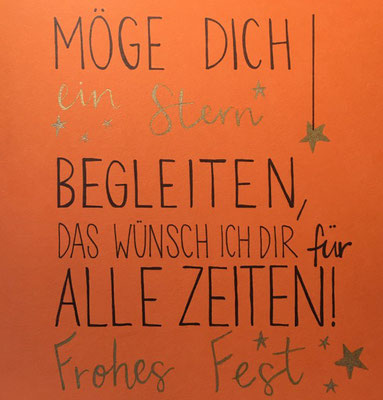 MÖGE DICH
ein Stern
BEGLEITEN,
DAS WÜNSCH ICH DIR für
ALLE ZEITEN!
Frohes Fest